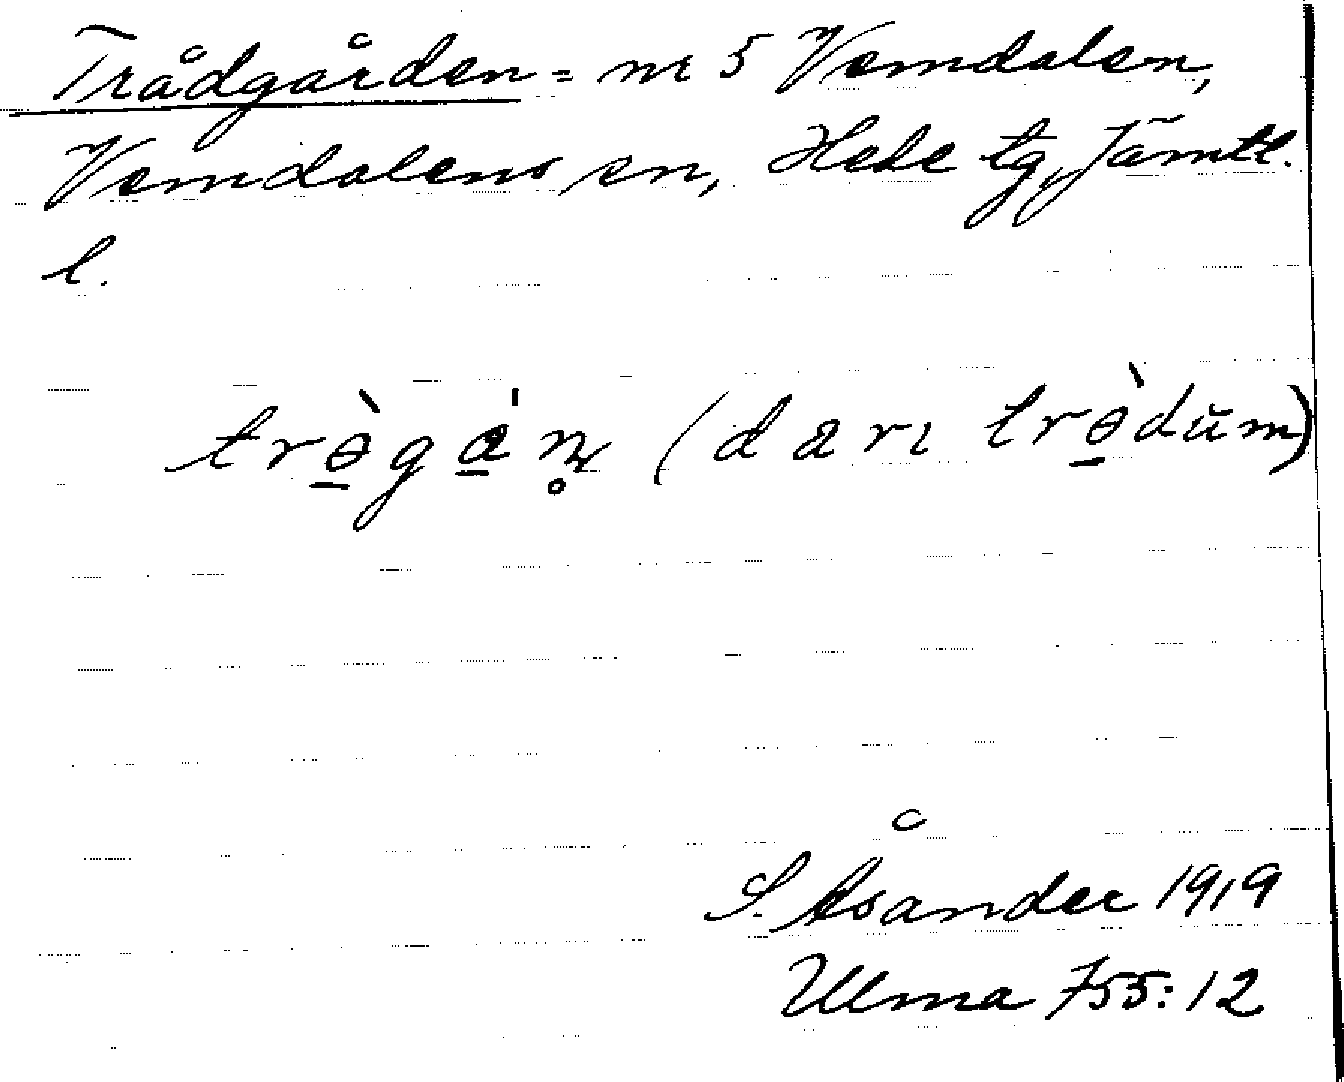 Trådgården = nr 5 Vemdalen,
Vemdalens sn, Hede tg, Jämtl.
l.
trɵ̠̀ga̠̍n̥ (darı trɵ̠̀dŭm)
S. Åsander 1919
Ulma 755:12